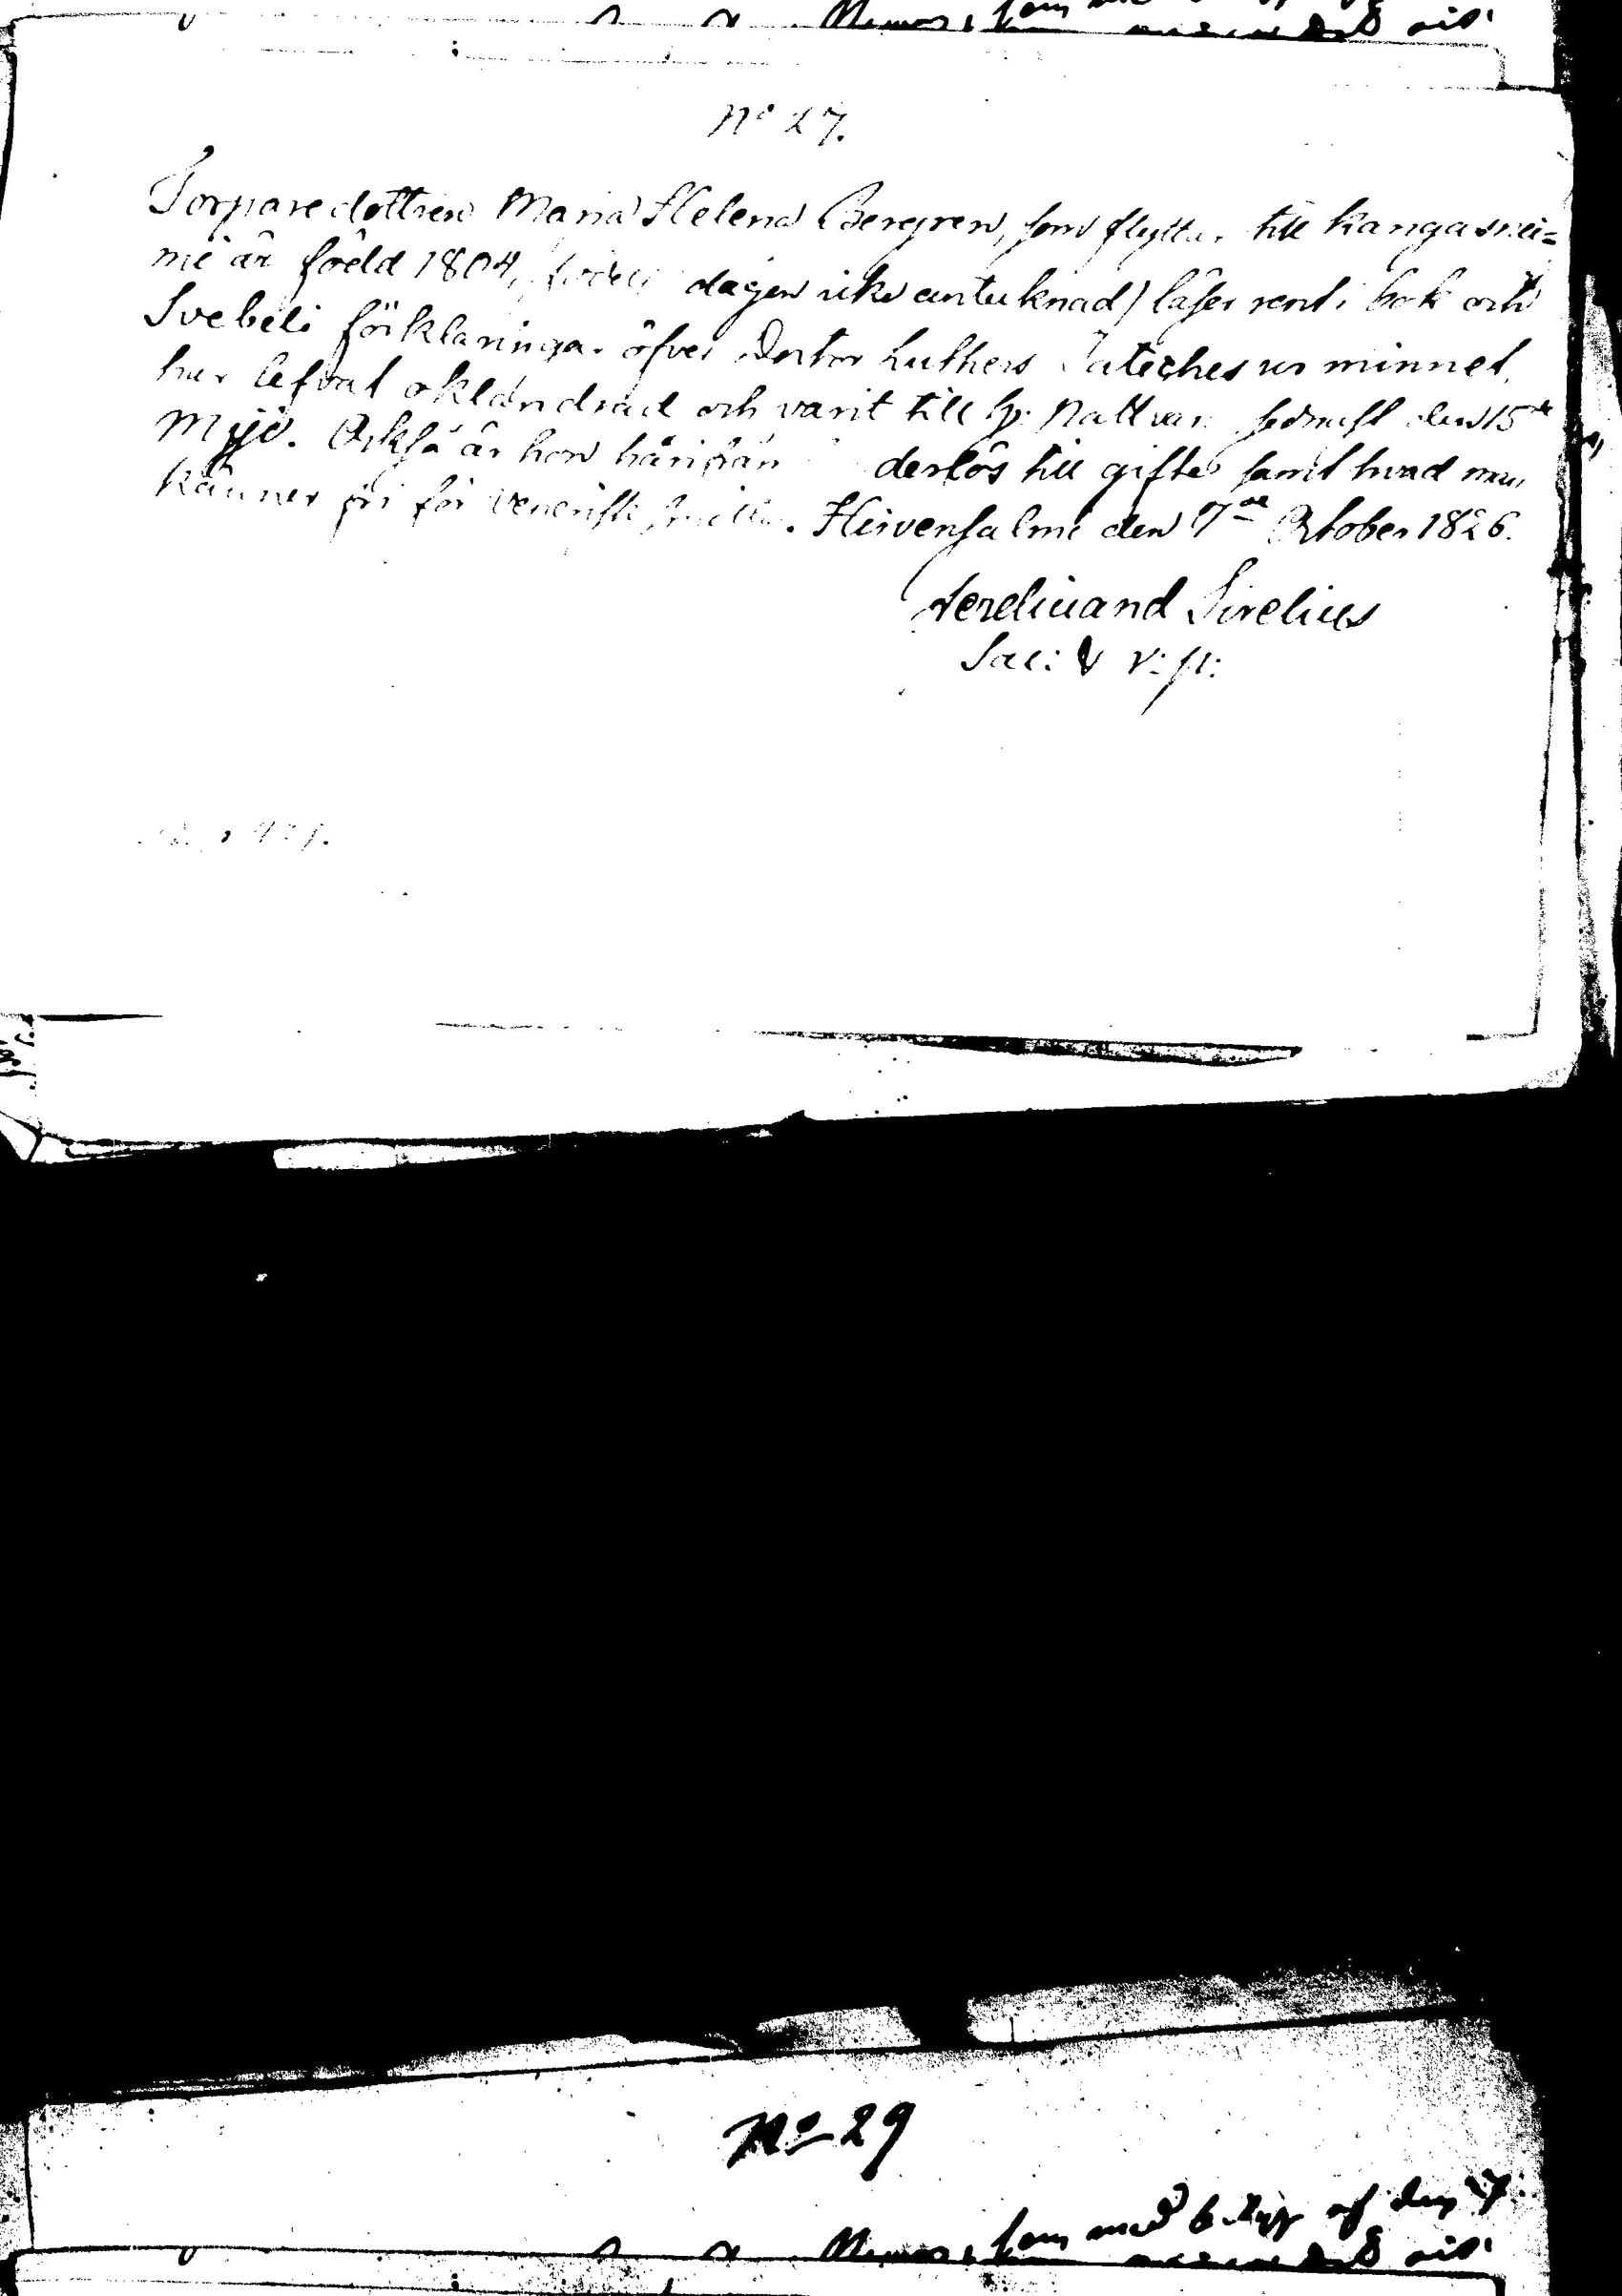 N:o 27.
Torparedottren Maria Helena Bergren, som flyttar till Kangasnie-
mi är född 1804, födelse dagen icke antecknad) läser rent i bok och
Svebelii förklaringar öfver Doctor Luthers Cateches ur minnet,
har lefvat oklandrad och varit till h: Nattvard sednast den 15de
Maji. Också är hon härifrån derlös till gifte samt hvad man
känner fri för venerisk smitta. Hirvensalmi den 7de October 1826.
Ferdinand Sirelius
Sac: V: p:
N:o 29
som med betyg af den 17